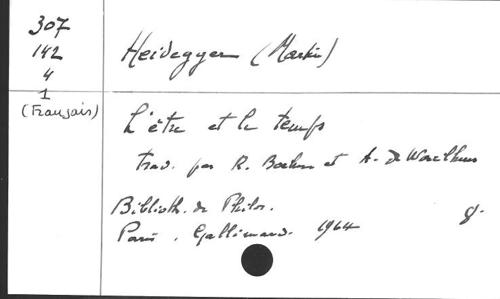 307
142
4
1
(Français)
Heidegger (Martin)
L'être et le temps
trad. par R. Boehm et A. de Waelhens
Biblioth. de Philos.
Paris. Gallimard. 1964
8.